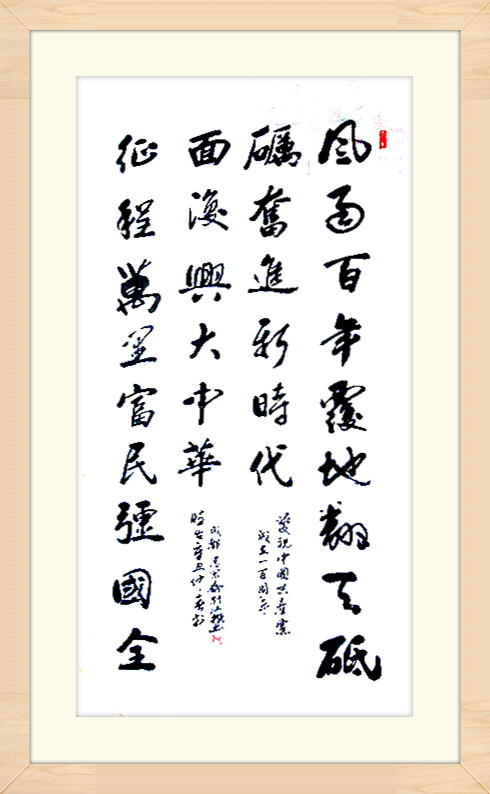 風雨百年覆地翻天砥
礪奮進新時代
慶祝中國共產黨
成立一百周年
征程萬里富民彊國全
面復興大中華
成都
時在辛丑仲春